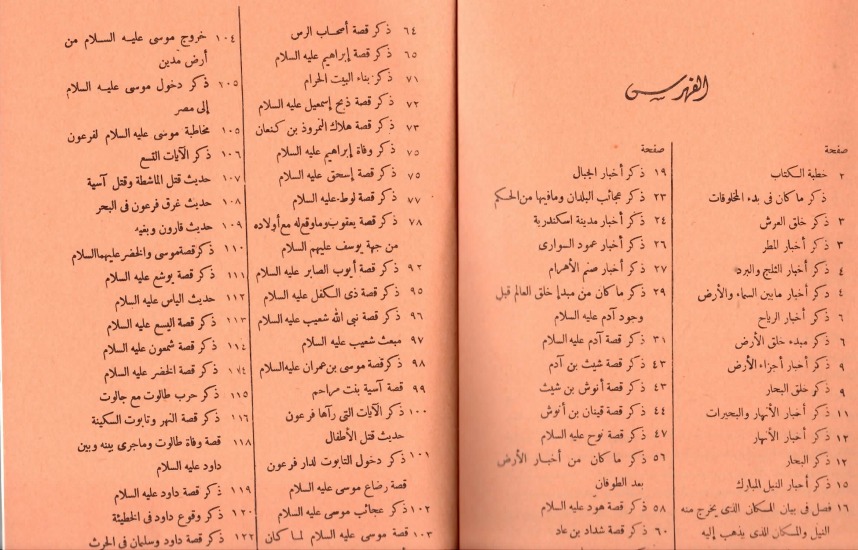 الفهرس
صفحة
٢ خطبة الكتاب
ذكر ما كان فى بدء المخلوقات
٣ ذكر خلق العرش
٣ ذكر أخبار المطر
٤ ذكر أخبار الثلج والبرد
٤ ذكر أخبار مابين السماء والأرض
٦ ذكر أخبار الرياح
٦ ذكر مبدء خلق الأرض
٩ ذكر أخبار أجزاء الأرض
٩ ذكر خلق البحار
١١ ذكر أخبار الأنهار والبحيرات
١٢ ذكر أخبار الأنهار
١٢ ذكر البحار
١٥ ذكر أخبار النيل المبارك
١٦ فصل فى بيان المسكان الذى يخرج منه
النيل والمسكان الذى يذهب إليه
صفحة
١٩ ذكر أخبار الجبال
٢٣ ذكر عجائب البلدان ومافيها من الحكم
٢٤ ذكر أخبار مدينة اسكندرية
٢٦ ذكر أخبار عمود السوارى
٢٧ ذكر أخبار صنم الأهرام
٢٩ ذكر ما كان من مبدإ خلق العالم قبل
وجود آدم عليه السلام
٣١ ذكر قصة آدم عليه السلام
٤٣ ذكر قصة شيث بن آدم
٤٣ ذكر قصة أنوش بن شيث
٤٤ ذكر قصة قينان بن أنوش
٤٧ ذكر قصة نوح عليه السلام
٥٦ ذكر ما كان من أخبار الأرض
بعد الطوفان
٥٨ ذكر قصة هود عليه السلام
٦٠ ذكر قصة شداد بن عاد
٦٤ ذكر قصة أصحاب الرس
٦٥ ذكر قصة إبراهيم عليه السلام
٧١ ذكر بناء البيت الحرام
٧٢ ذكر قصة ذبح إسمعيل عليه السلام
٧٣ ذكر قصة هلاك النمروذ بن كنعان
٧٥ ذكر وفاة إبراهيم عليه السلام
٧٥ ذكر قصة إسحق عليه السلام
٧٧ ذكر قصة لوط عليه السلام
٧٨ ذكر قصة يعقوب وماوقع له مع أولاده
من جهة يوسف عليهم السلام
٩٢ ذكر قصة أيوب الصابر عليه السلام
٩٥ ذكر قصة ذى الكفل عليه السلام
٩٦ ذكر قصة نبى الله شعيب عليه السلام
٩٧ مبعث شعيب عليه السلام
٩٨ ذكر قصة موسى بن عمران عليه السلام
٩٩ قصة آسية بنت مراحم
١٠٠ ذكر الآيات التى رآها فرعون
حديث قتل الأطفال
١٠١ ذكر دخول التابوت لدار فرعون
قصة رضاع موسى عليه السلام
١٠٢ ذكر عجائب موسى عليه السلام
١٠٣ قصة موسى عليه السلام لما كان
١٠٤ خروج موسى عليه السلام من
أرض مدين
١٠٥ ذكر دخول موسى عليه السلام
إلى مصر
١٠٥ مخاطبة موسى عليه السلام لفرعون
١٠٦ ذكر الآيات التسع
١٠٧ حديث قتل الماشطة وقتل آسية
١٠٨ حديث غرق فرعون فى البحر
١٠٩ حديث قارون وبغيه
١١٠ ذكر قصة موسى والخضر عليهما السلام
١١١ ذكر قصة يوشع عليه السلام
١١٢ حديث الياس عليه السلام
١١٣ ذكر قصة اليسع عليه السلام
١١٤ ذكر قصة شمعون عليه السلام
١٧٤ ذكر قصة الخضر عليه السلام
١١٥ ذكر حرب طالوت مع جالوت
١١٦ ذكر قصة النهر وتابوت السكينة
١١٨ قصة وفاة طالوت وماجرى بينه وبين
داود عليه السلام
١١٩ ذكر قصة داود عليه السلام
١٢٠ ذكر وقوع داود فى الخطيئة
١٢٢ ذكر قصة داود وسلمان فى الحرث